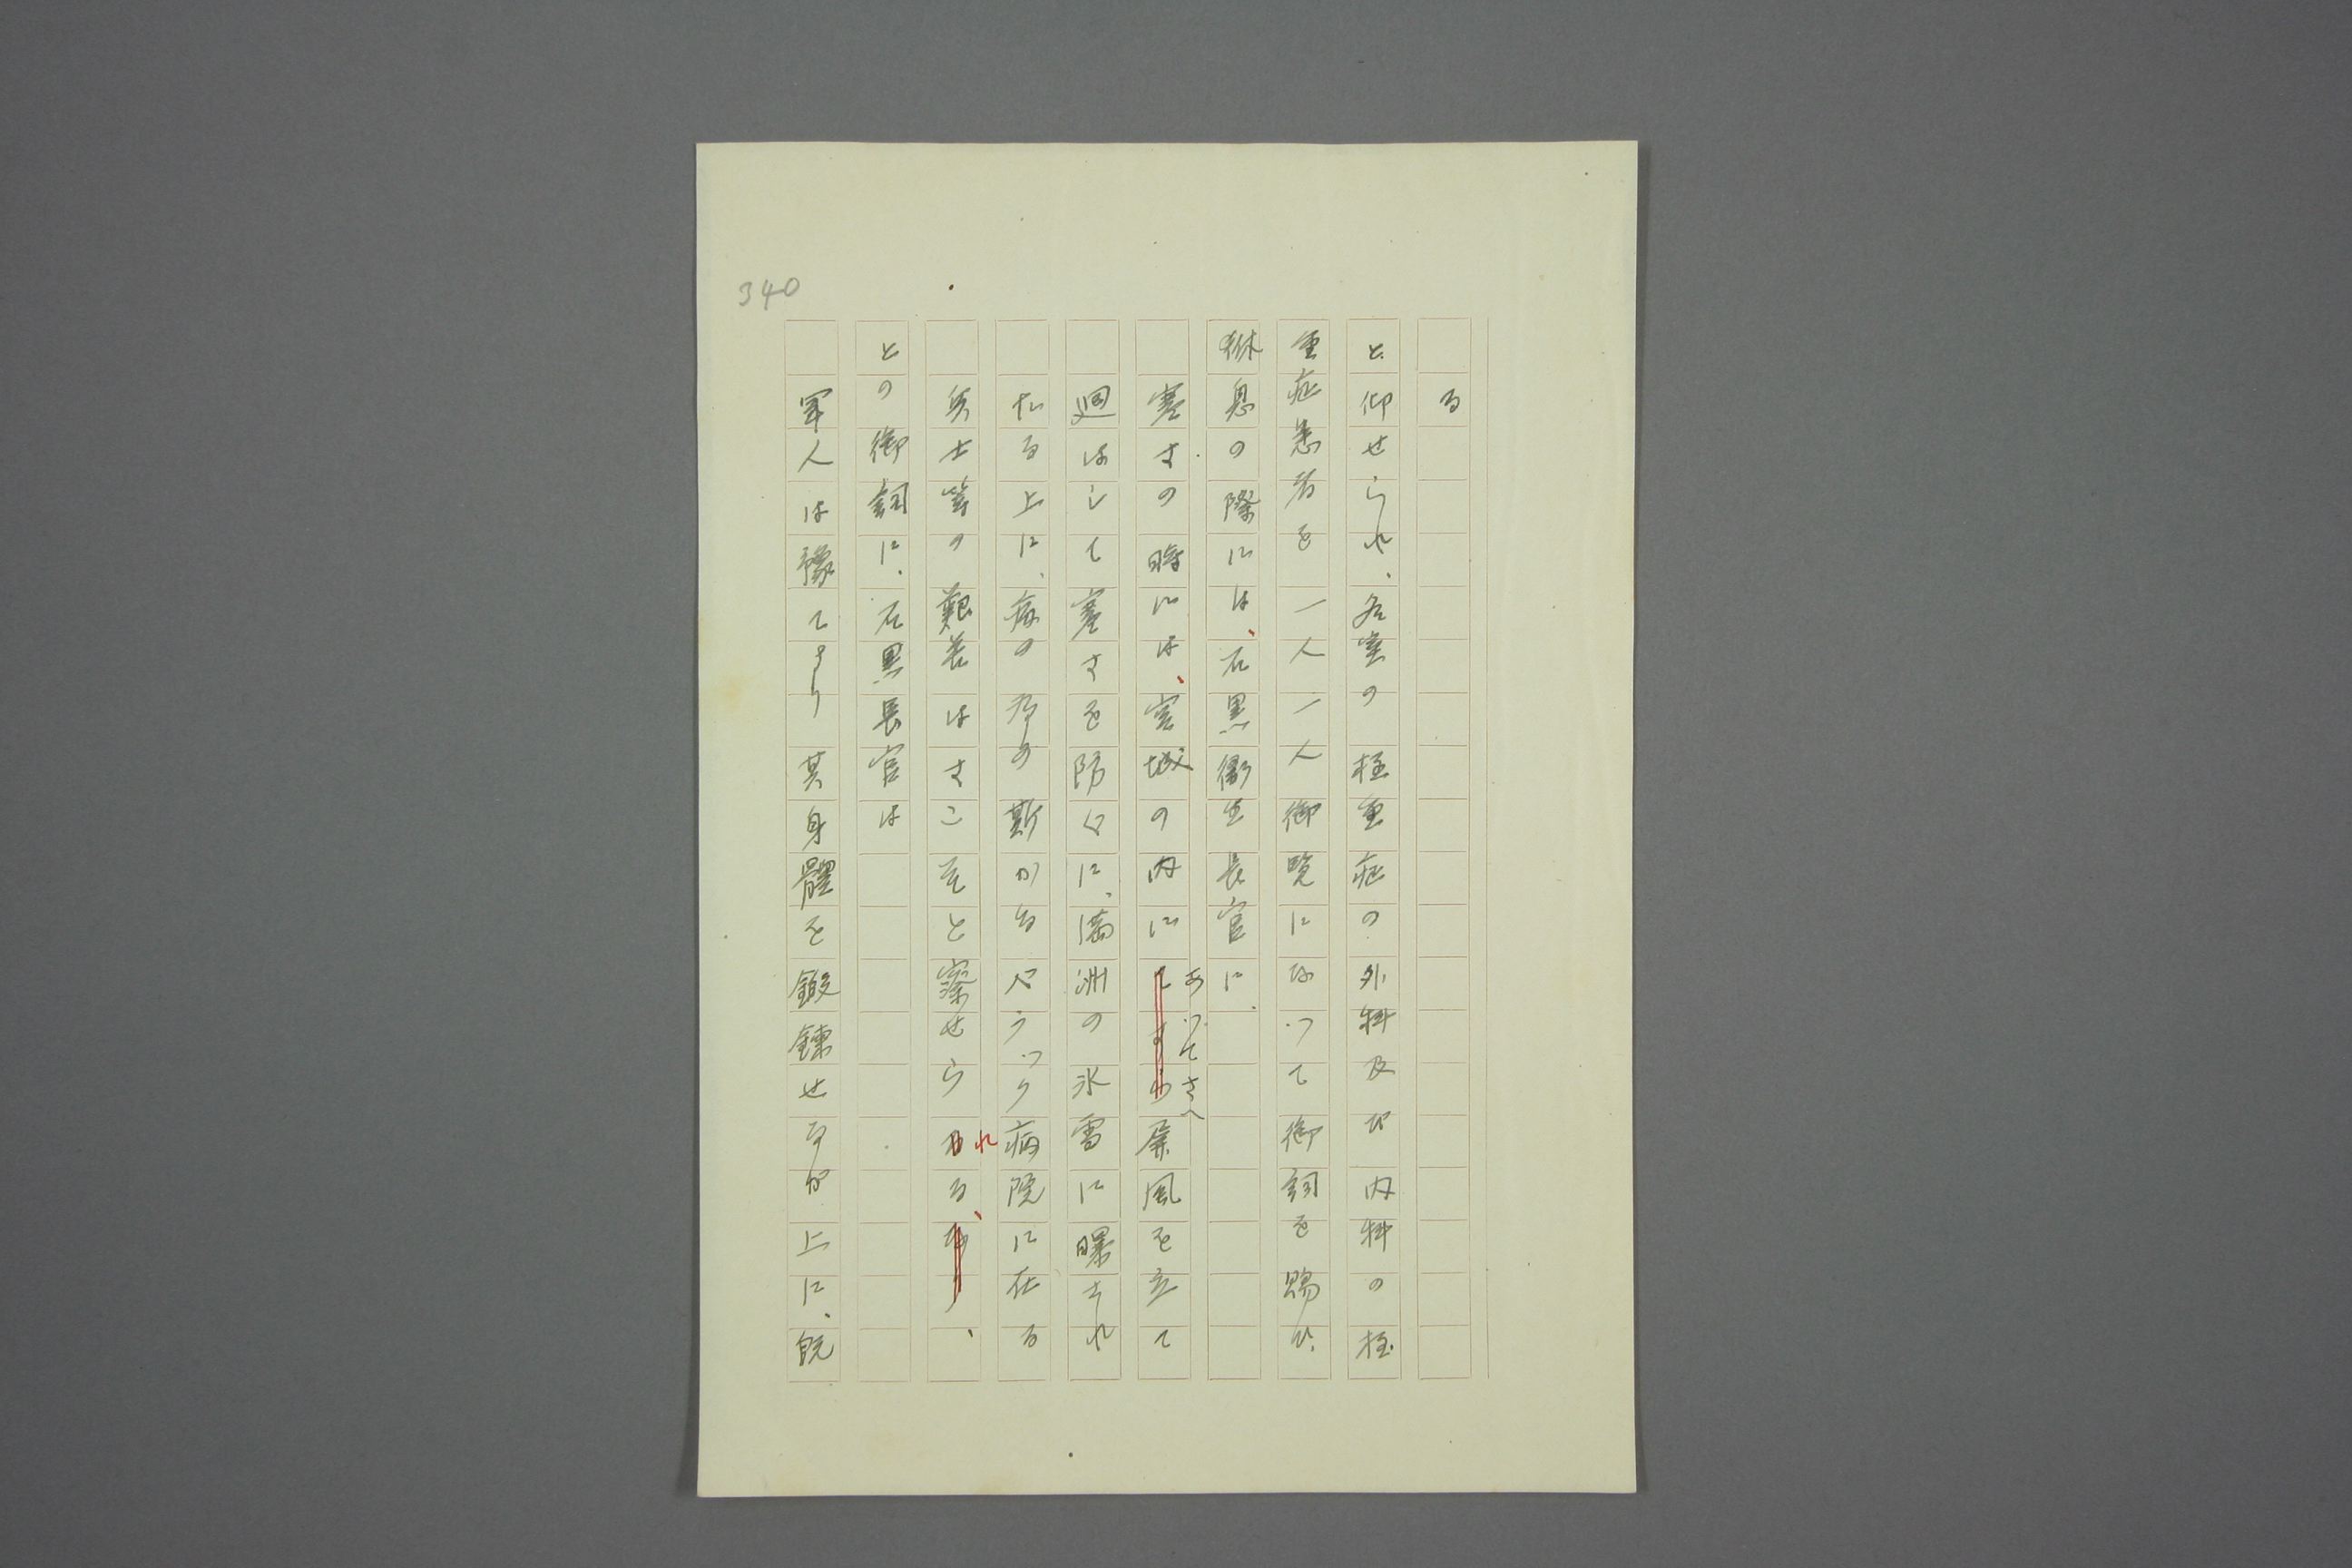 340
る
と仰せられ、各室の極重症の外科及び内科の極
重症患者を一人一人御覧になつて御詞を賜ひ、
休息の際には、石黒衞生長官に、
寒さの時には、宮城の内にあつてさへ屏風を立て
廻はして寒さを防ぐに、満洲の氷雪に曝され
たる上に、病の為め斯かるベラツク病院に在る
兵士等の艱苦はさこそと察せられる、
との御詞に、石黒長官は
軍人は豫てより其身體を鍛錬せるが上に、既